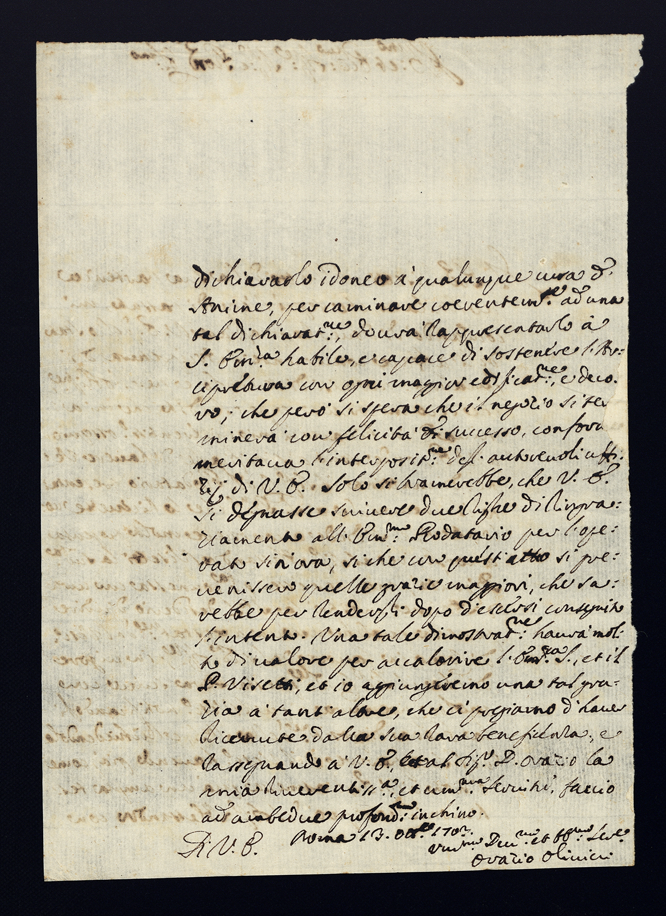 dichiararlo idoneo à qualunque cura d'
Anime, per caminare coerentem.te ad una
tal dichiarat.ne, dovrà rappresentarlo à
S. Em.za habile, e capace di sostenere l'Ar-
cipretura con ogni maggior edificat.ne, e deco-
ro; che però si spera che il negozio si ter
minerà con felicità di successo, conforme
meritava l'interposit.ne del autorevoli uff-
zij di V. E. Solo si bramerebbe, che V. E.
si degnasse scrivere due righe di ringra-
ziamento all' Em.mo Prodatario per l'ope-
rato sin'ora, si che con quest'atto si pre-
venissero quelle grazie maggiori, che sa-
rebbe per rendergli dopo d'essersi conseguito
l'intento. Una tale dimostrat.ne haurà mol-
to di valore per accalorire l'Em.za S., et il
P. Visetti, et io aggiungeremo una tal gra-
zia à tant'altre, che ci pregiamo d'haver
ricevute dalla sua rara beneficenza, e
rassegnando à V. E., et al Sig.r D. Orazio la
mia riverentiss.a, et um.ma servitù, faccio
ad ambedue profond.mo inchino.
Di V. E. Roma 13. Ott.re 170
Um.mo Dev.mo et Obb.mo Serv.e
Orazio Olivieri